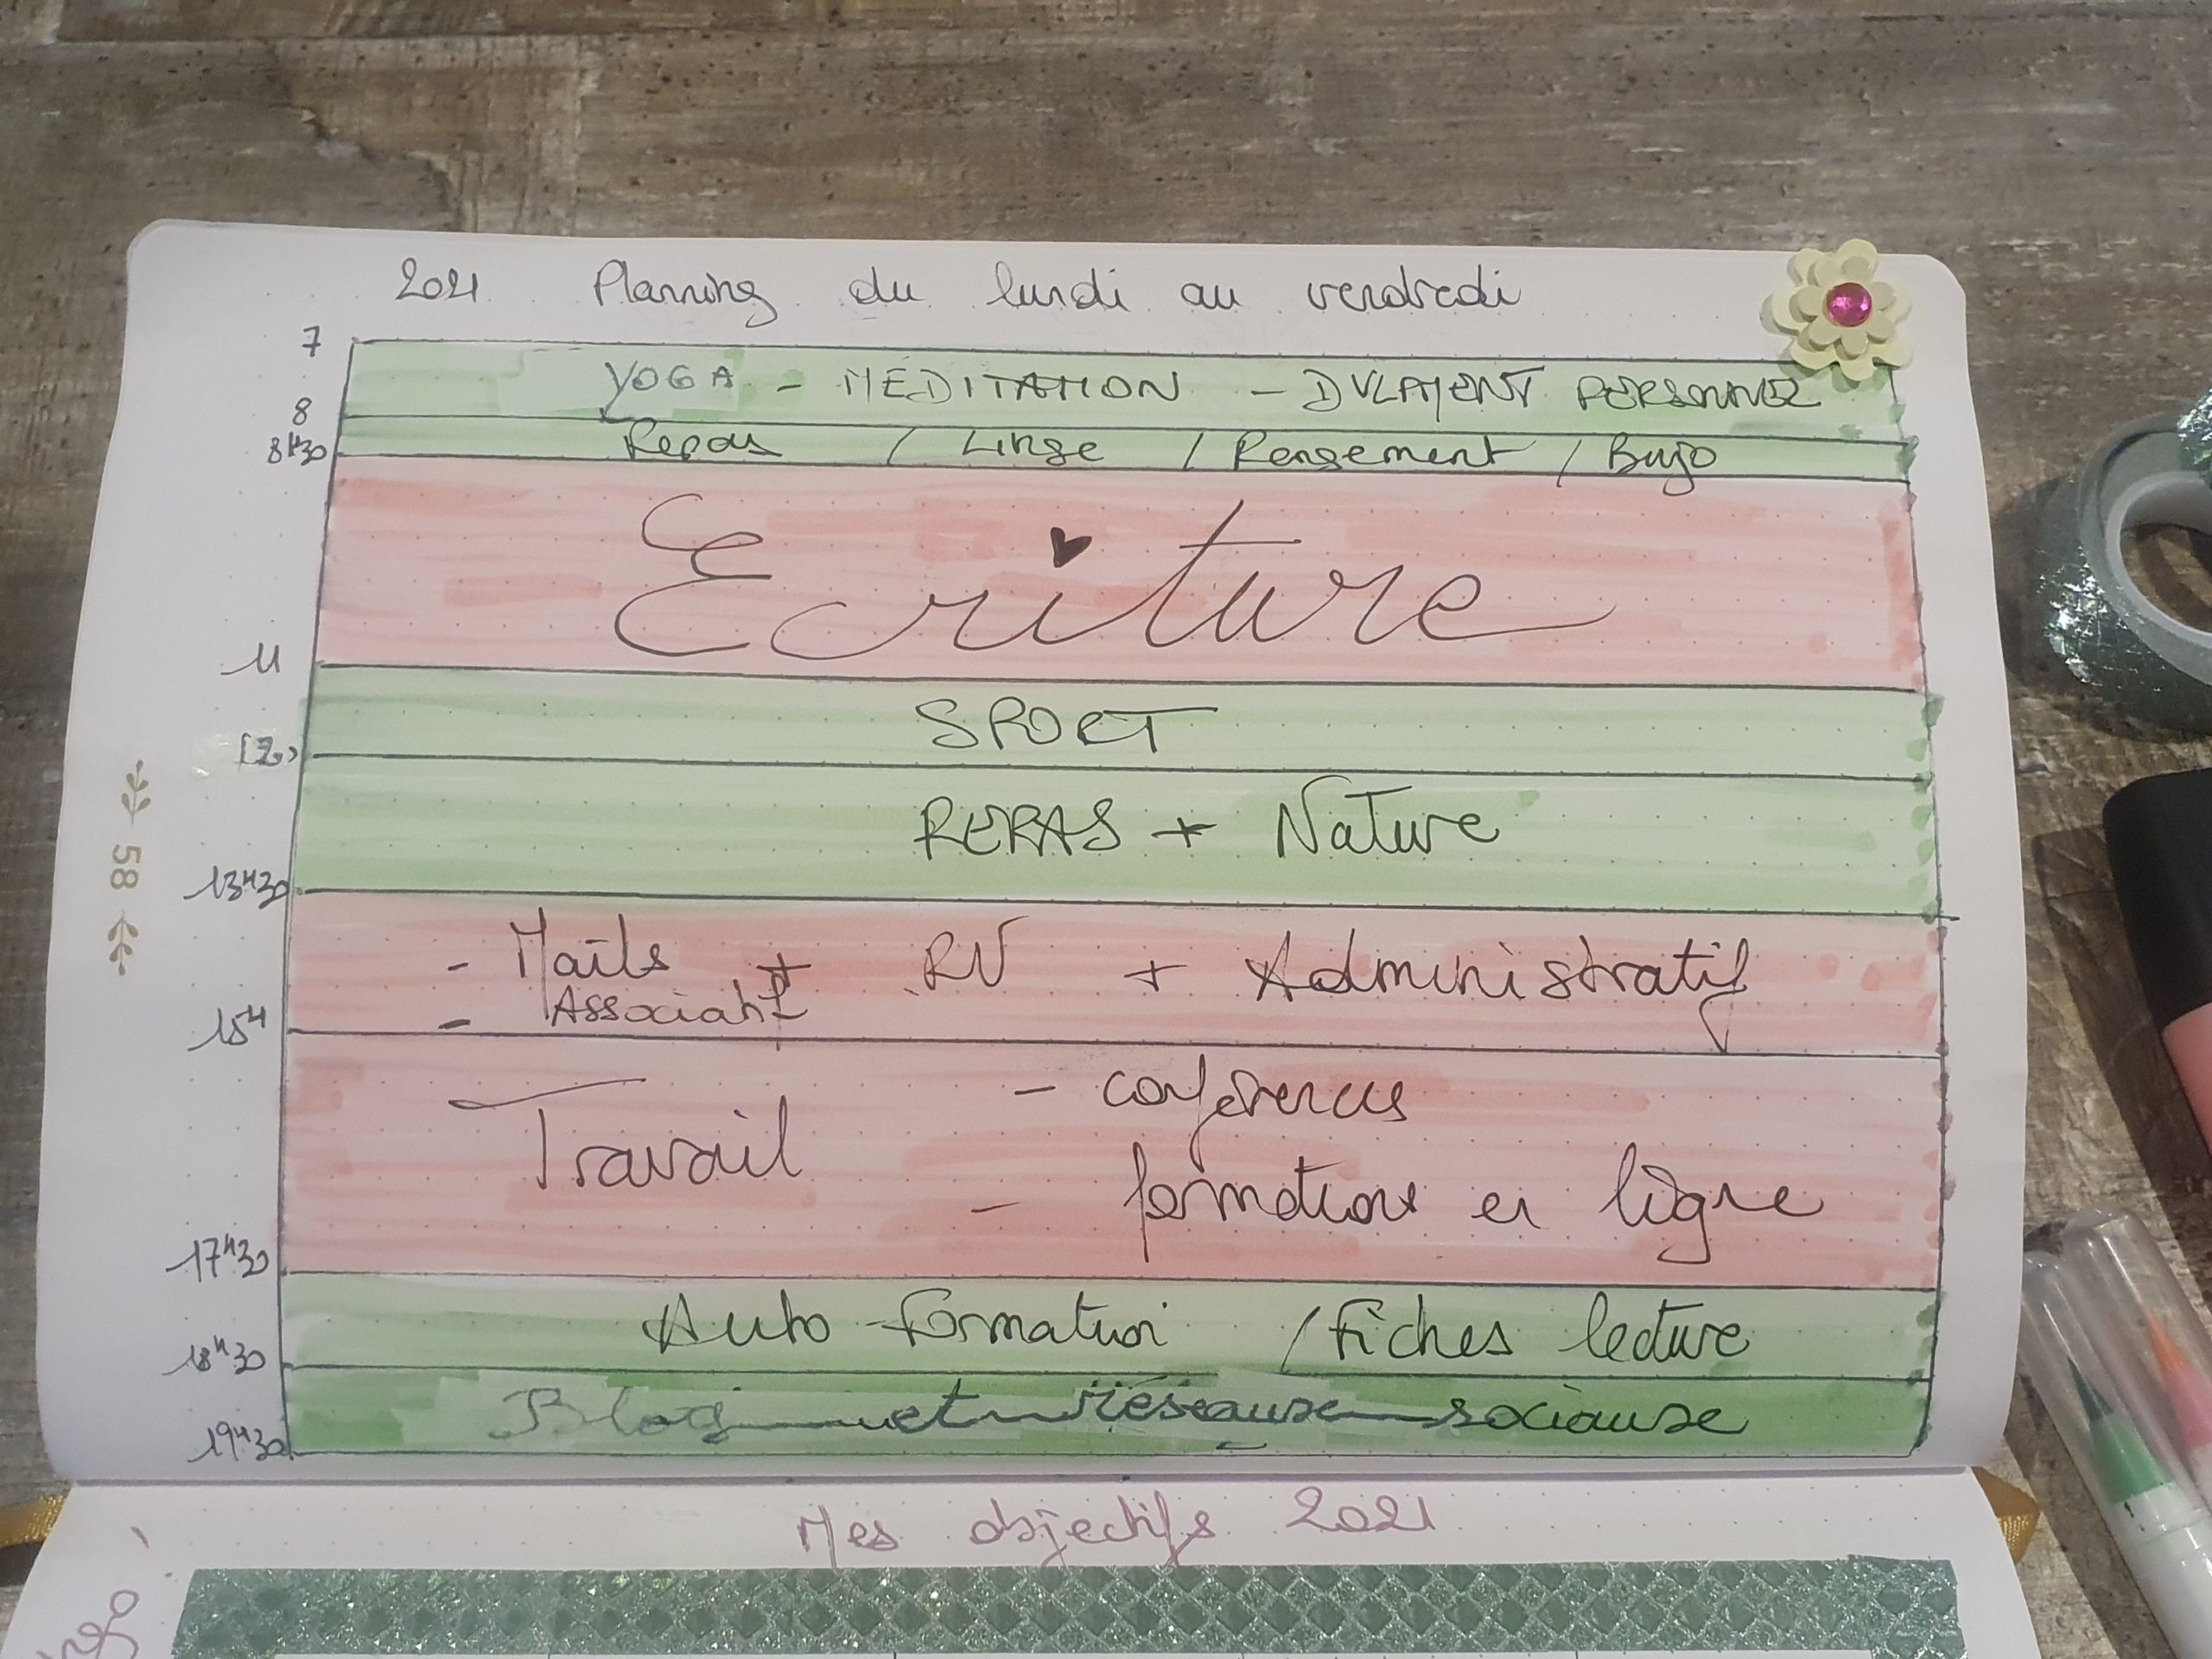 2021 Planning du lundi au vendredi
7
YOGA - MÉDITATION - DVLPMENT PERSONNEL
8
Repas / Linge / Rangement / Bujo
8H30
Ecriture
11
SPORT
12
REPAS + Nature
13H30
- Mails + RV + Administratif
- Associatif
15H
Travail - conférences
- formations en ligne
17H30
Auto-formation / Fiches lecture
18H30
Blog et réseaux sociaux
19H30
58
Mes objectifs 2021